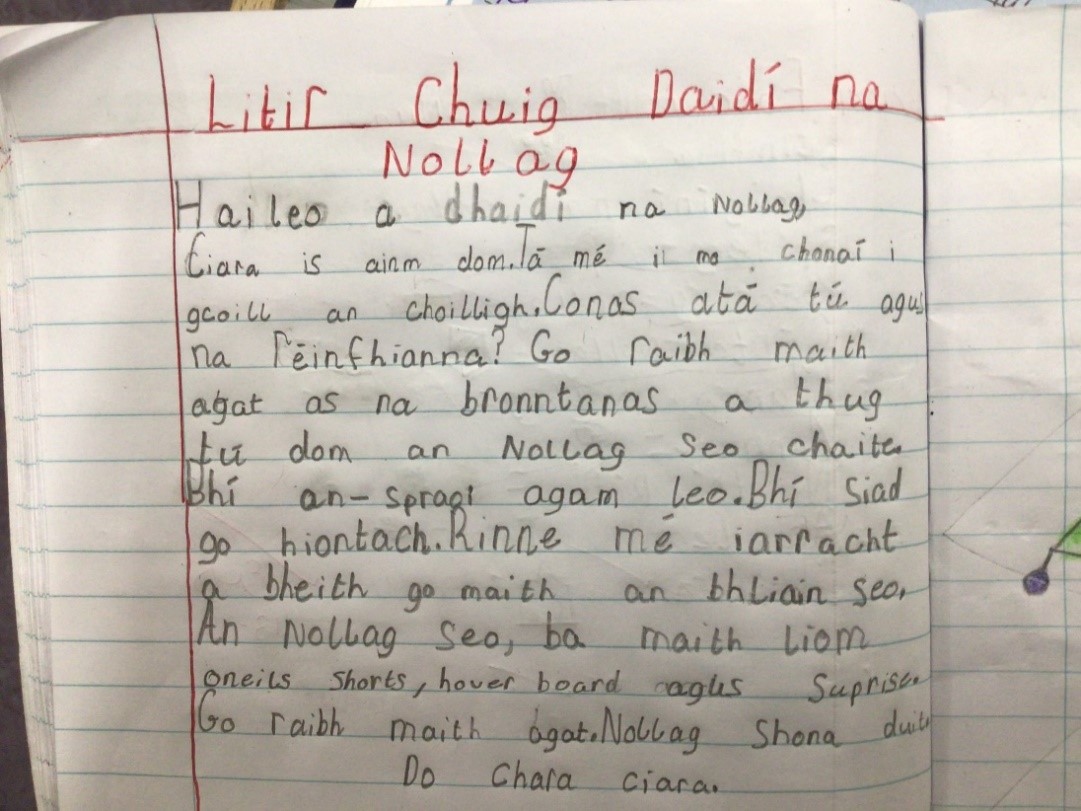 Litir Chuig Daidí na
Nollag
Haileo a dhaidí na Nollag,
Ciara is ainm dom. Tá mé ii mo chonaí i
gcoill an choilligh. Conas atá tú agus
na réinfhianna? Go raibh maith
agat as na bronntanas a thug
tú dom an Nollag seo chaite.
Bhí an-spraoi agam leo. Bhí siad
go hiontach. Rinne mé iarracht
a bheith go maith an bhliain seo.
An Nollag seo, ba maith liom
oneils shorts, hover board agus Suprise.
Go raibh maith agat. Nollag Shona duit
Do Chara Ciara.